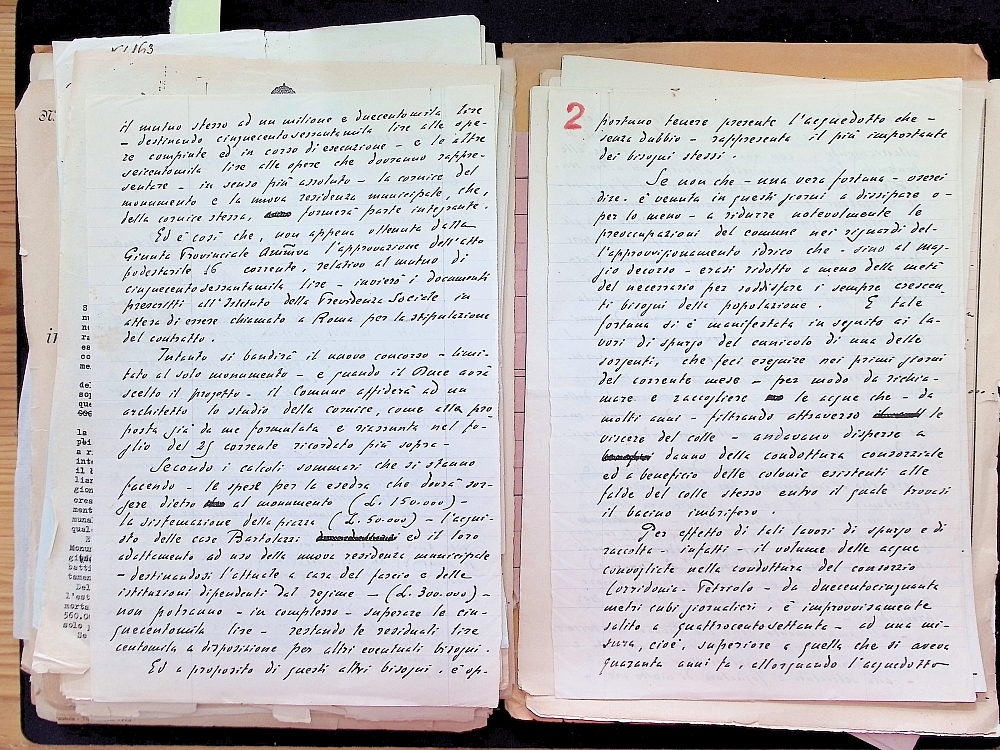 il mutuo stesso ad un milione e duecentomila lire
- destinando cinquecentosessantamila lire alle ope-
re compiute ed in corso di esecuzione - e le altre
seicentomila lire alle opere che dovranno rappre-
sentare - in senso più assoluto - la cornice del
monumento e la nuova residenza municipale, che,
della cornice stessa, formerà parte integrante.
Ed è così che, non appena ottenuta dalla
Giunta Provinciale Amm̃va l'approvazione dell'atto
podestarile 16 corrente, relativo al mutuo di
cinquecentosessantamila lire - invierò i documenti
prescritti all'Istituto della Previdenza Sociale in
attesa di essere chiamato a Roma per la stipulazione
del contratto.
Intanto si bandirà il nuovo concorso - limi-
tato al solo monumento - e quando il Duce avrà
scelto il progetto - il Comune affiderà ad un
architetto lo studio della cornice, come alla pro
posta già da me formulata e riassunta nel fo-
glio del 25 corrente ricordato più sopra -
Secondo i calcoli sommari che si stanno
facendo - le spese per la esedra che dovrà sor-
gere dietro al monumento (L. 150.000) -
la sistemazione della piazza (L. 50.000) - l'acqui-
sto delle case Bartolazzi ed il loro
adattamento ad uso della nuova residenza municipale
- destinandosi l'attuale a casa del fascio e delle
istituzioni dipendenti dal regime - (L. 300.000) -
non potranno - in complesso - superare le cin-
quecentomila lire - restando le residuali lire
centomila a disposizione per altri eventuali bisogni.
Ed a proposito di questi altri bisogni, è op-
2
portuno tenere presente l'acquedotto che -
senza dubbio - rappresenta il più importante
dei bisogni stessi.
Se non che - una vera fortuna - oserei
dire - è venuta in questi giorni a dissipare o -
per lo meno - a ridurre notevolmente le
preoccupazioni del comune nei riguardi del-
l'approvvigionamento idrico che - sino al mag-
gio decorso - erasi ridotto a meno della metà
del necessario per soddisfare i sempre crescen-
ti bisogni della popolazione. E tale
fortuna si è manifestata in seguito ai la-
vori di spurgo del cunicolo di una delle
sorgenti, che feci eseguire nei primi giorni
del corrente mese - per modo da richia-
mare e raccogliere le acque che - da
molti anni - filtrando attraverso le
viscere del colle - andavano disperse a
danno della condottura consorziale
ed a beneficio delle colonie esistenti alle
falde del colle stesso entro il quale trovasi
il bacino imbrifero.
Per effetto di tali lavori di spurgo e di
raccolta - infatti - il volume delle acque
convogliate nella condottura del consorzio
Corridonia - Petriolo - da duecentocinquanta
metri cubi giornalieri, è improvvisamente
salito a quattrocentosettanta - ad una mi-
sura, cioè, superiore a quella che si aveva
quaranta anni fa, allorquando l'acquedotto